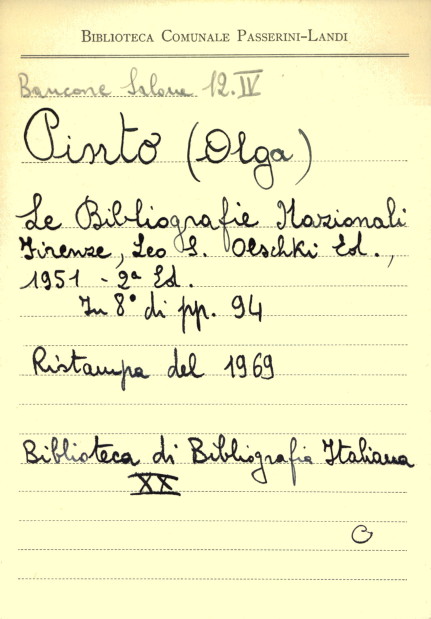 BIBLIOTECA COMUNALE PASSERINI-LANDI
Bancone Salone 12.IV
Pinto (Olga)
Le Bibliografie Nazionali
Firenze, Leo S. Olschki Ed.,
1951 - 2ª Ed.
In 8° di pp. 94
Ristampa del 1969
Biblioteca di Bibliografia Italiana
XX